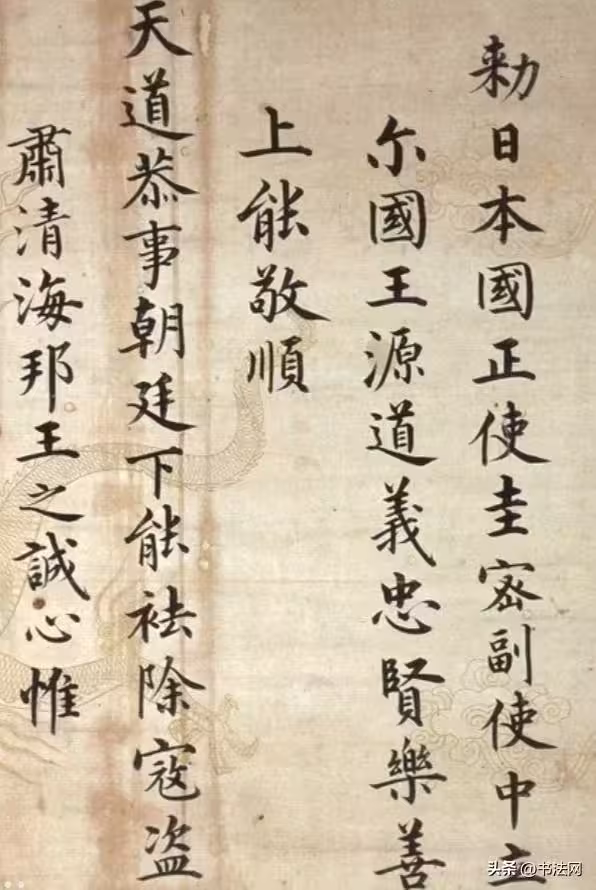 勑日本國正使圭密副使中立
尔國王源道義忠賢樂善
上能敬順
天道恭事朝廷下能祛除寇盗
肅清海邦王之誠心惟
头条 @书法网